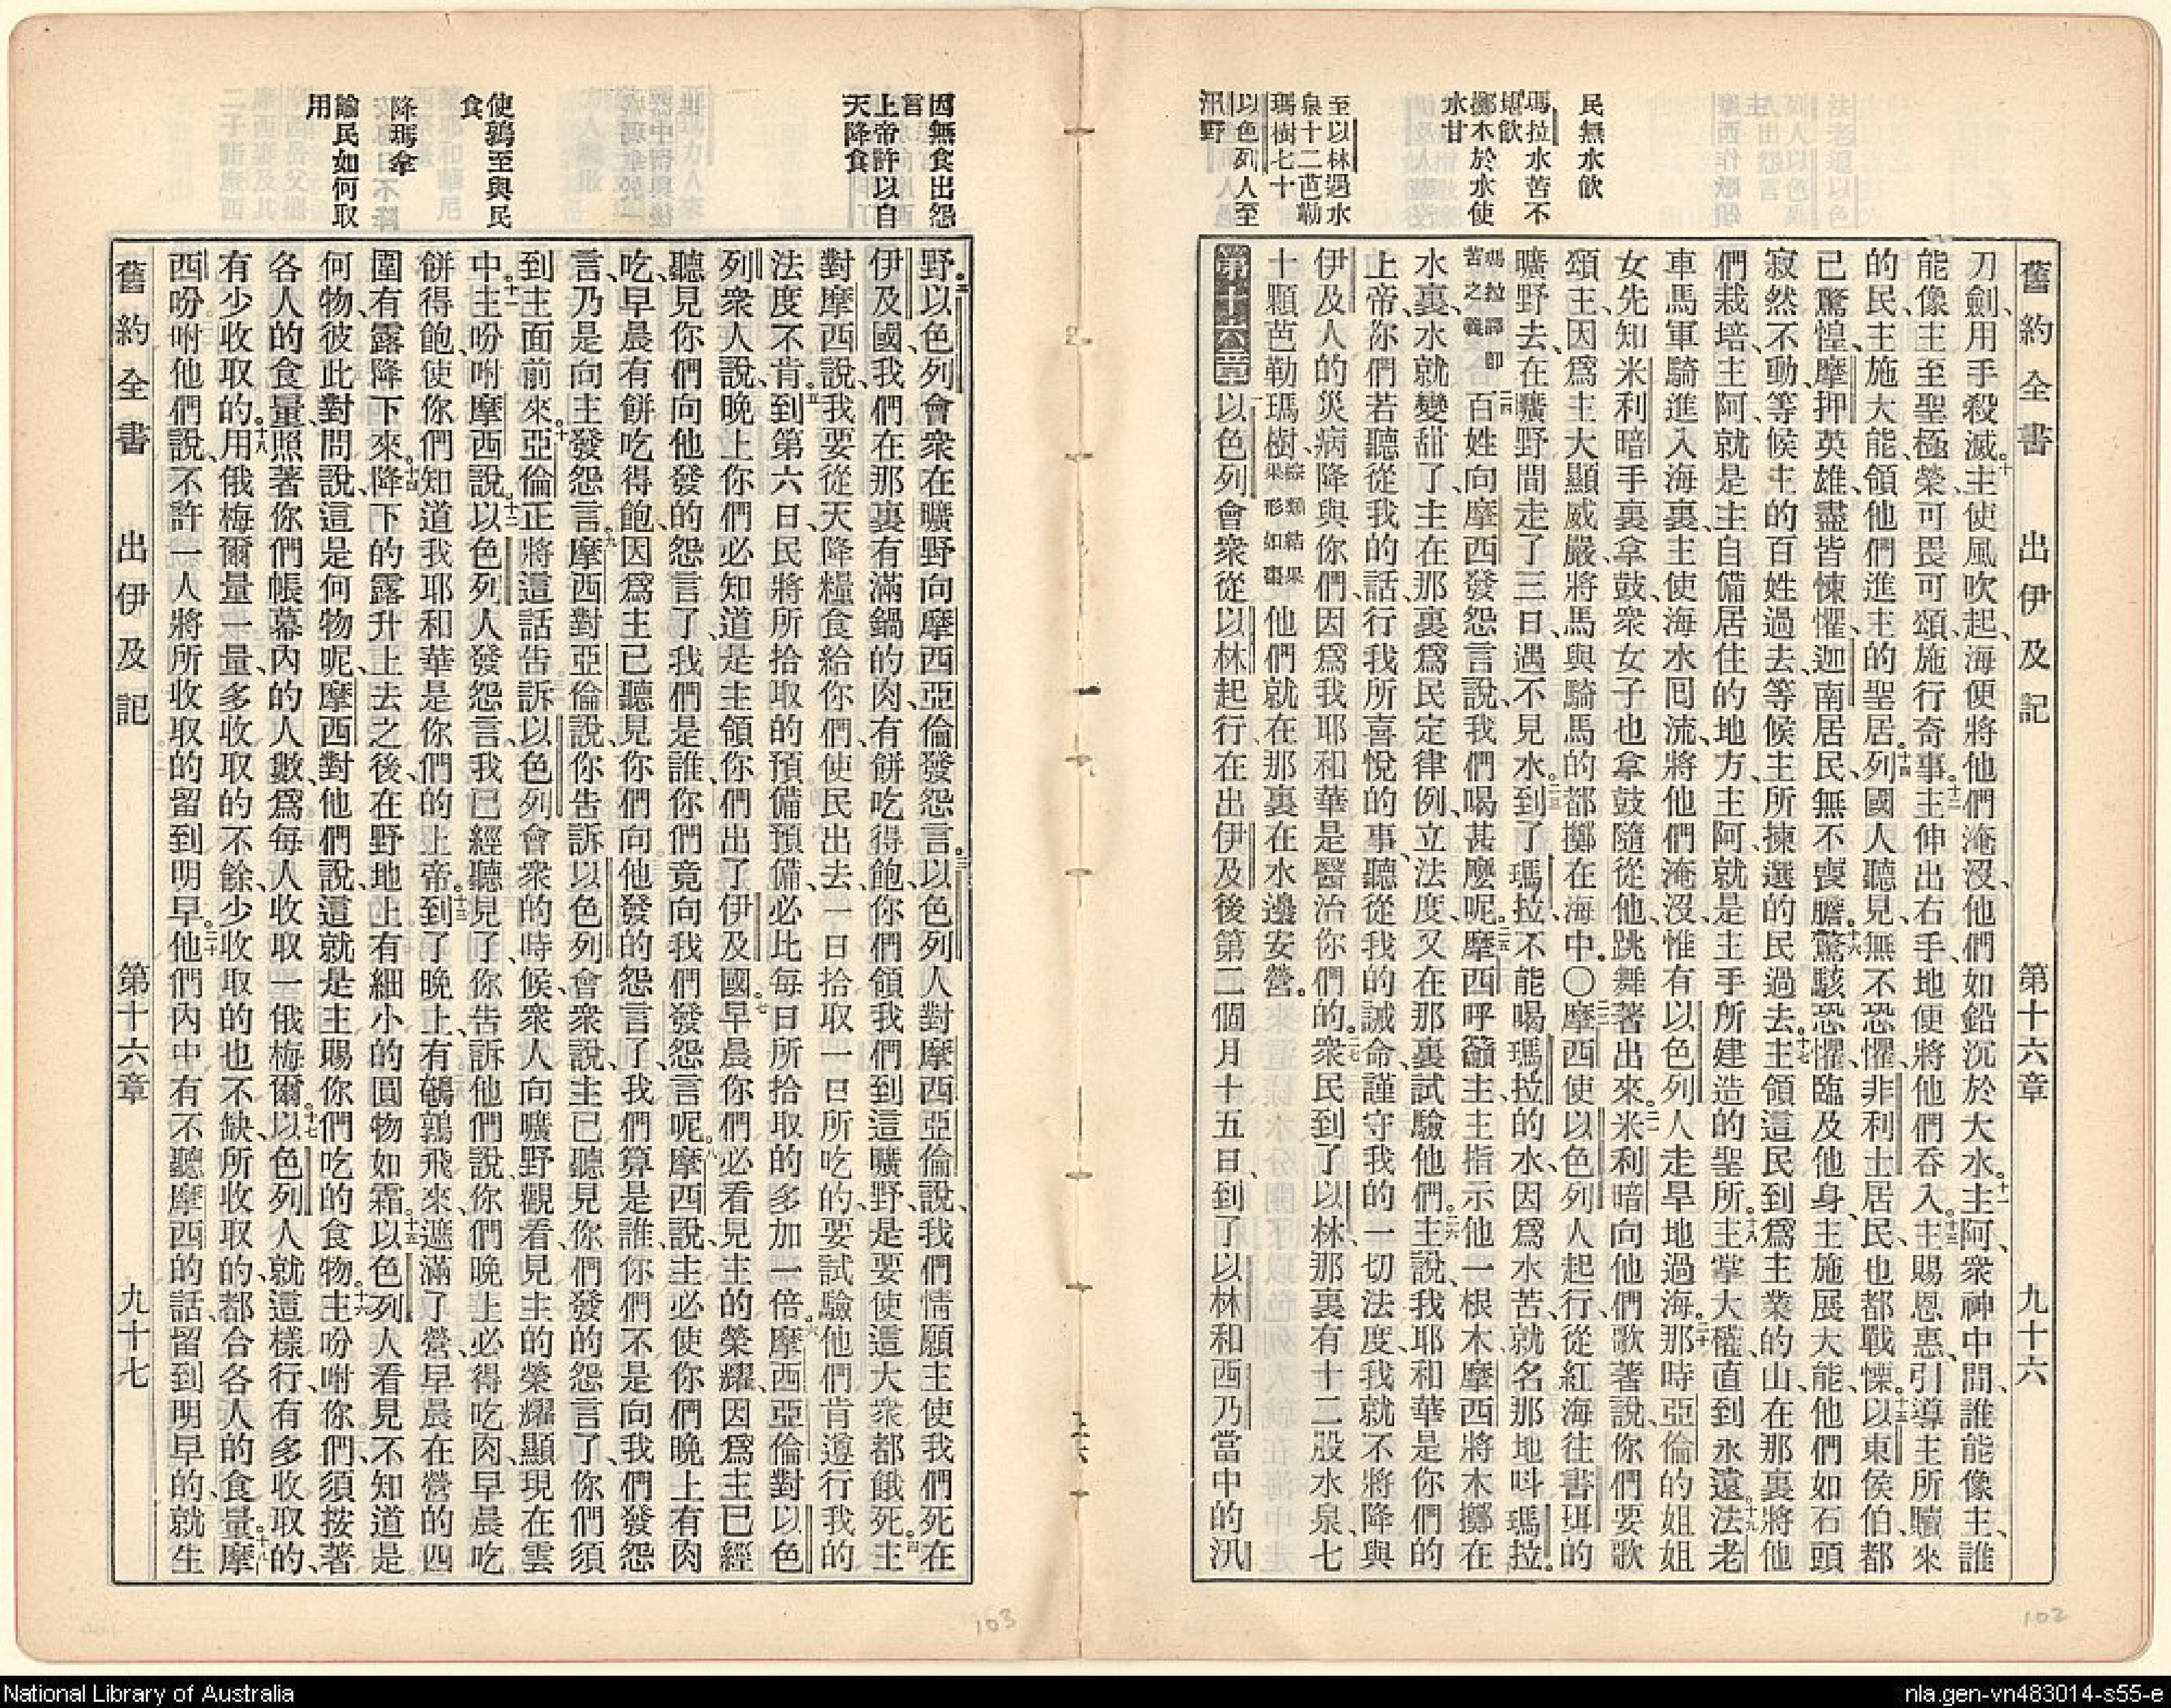 舊約全書 出伊及記 第十六章 九十六
民無水飲
瑪拉水苦不
堪飲
擲木於水使
水甘
至以林遇水
泉十二芭勒
瑪樹七十
以色列人至
汛野
刀劍、用手殺滅。十主使風吹起、海便將他們淹沒、他們如鉛沉於大水。十一主阿、衆神中間、誰能像主、誰
能像主至聖極榮、可畏可頌、施行奇事。十二主伸出右手、地便將他們吞入。十三主賜恩惠、引導主所贖來
的民、主施大能、領他們進主的聖居。十四列國人聽見、無不恐懼、非利士居民、也都戰慄。十五以東侯伯、都
已驚惶、摩押英雄、盡皆悚懼、迦南居民、無不喪膽。十六驚駭恐懼、臨及他身、主施展大能、他們如石頭
寂然不動、等候主的百姓過去、等候主所揀選的民過去。十七主領這民到爲主業的山、在那裏將他
們栽培、主阿、就是主自備居住的地方、主阿、就是主手所建造的聖所。十八主掌大權、直到永遠。十九法老
車馬軍騎進入海裏、主使海水囘流、將他們淹沒、惟有以色列人走旱地過海。二十那時亞倫的姐姐
女先知米利暗手裏拿鼓、衆女子也拿鼓隨從他、跳舞著出來。二一米利暗向他們歌著說、你們要歌
頌主、因爲主大顯威嚴、將馬與騎馬的都擲在海中。〇二二摩西使以色列人起行、從紅海往書珥的
曠野去、在曠野間走了三日、遇不見水。二三到了瑪拉、不能喝瑪拉的水、因爲水苦、就名那地呌瑪拉。
瑪拉譯卽苦之義二四百姓向摩西發怨言說、我們喝甚麼呢。二五摩西呼籲主、主指示他一根木、摩西將木擲在
水裏、水就變甜了、主在那裏爲民定律例、立法度、又在那裏試驗他們。二六主說、我耶和華是你們的
上帝、你們若聽從我的話、行我所喜悅的事、聽從我的誡命、謹守我的一切法度、我就不將降與
伊及人的災病降與你們、因爲我耶和華是醫治你們的。二七衆民到了以林、那裏有十二股水泉、七
十顆芭勒瑪樹、棕類結果果形如棗他們就在那裏在水邊安營。
第十六章 一以色列會衆從以林起行、在出伊及後第二個月十五日、到了以林和西乃當中的汛
因無食出怨
言
上帝許以自
天降食
使鶉至與民
食
降瑪拿
諭民如何取
用
野。二以色列會衆在曠野向摩西亞倫發怨言。三以色列人對摩西亞倫說、我們情願主使我們死在
伊及國、我們在那裏有滿鍋的肉、有餅吃得飽、你們領我們到這曠野、是要使這大衆都餓死。四主
對摩西說、我要從天降糧食給你們、使民出去、一日拾取一日所吃的、要試驗他們肯遵行我的
法度不肯。五到第六日、民將所拾取的預備預備、必比每日所拾取的多加一倍。六摩西亞倫對以色
列衆人說、晚上你們必知道是主領你們出了伊及國。七早晨你們必看見主的榮耀、因爲主已經
聽見你們向他發的怨言了、我們是誰、你們竟向我們發怨言呢。八摩西說、主必使你們晚上有肉
吃、早晨有餅吃得飽、因爲主已聽見你們向他發的怨言了、我們算是誰、你們不是向我們發怨
言、乃是向主發怨言。九摩西對亞倫說、你告訴以色列會衆說、主已聽見你們發的怨言了、你們須
到主面前來。十亞倫正將這話告訴以色列會衆的時候、衆人向曠野觀看、見主的榮耀顯現在雲
中。十一主吩咐摩西說。十二以色列人發怨言、我已經聽見了、你告訴他們說、你們晚上必得吃肉、早晨吃
餅得飽、使你們知道我耶和華是你們的上帝。十三到了晚上、有鵪鶉飛來、遮滿了營、早晨在營的四
圍有露降下來。十四降下的露升上去之後、在野地上有細小的圓物如霜。十五以色列人看見不知道是
何物、彼此對問說、這是何物呢、摩西對他們說、這就是主賜你們吃的食物。十六主吩咐你們、須按著
各人的食量、照著你們帳幕內的人數、爲每人收取一俄梅爾。十七以色列人就這樣行、有多收取的、
有少收取的。十八用俄梅爾量一量、多收取的不餘、少收取的也不缺、所收取的、都合各人的食量。十九摩
西吩咐他們說、不許一人將所收取的留到明早。二十他們內中有不聽摩西的話、留到明早的、就生
舊約全書 出伊及記 第十六章 九十七
102
103
National Library of Australia
nla.gen-vn483014-s55-e